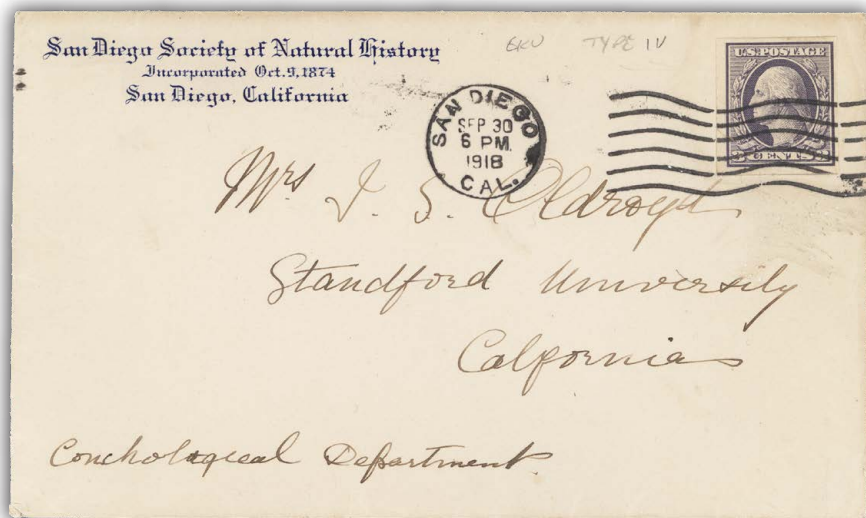 San Diego Society of Natural History
Incorporated Oct. 9, 1874
San Diego, California
EKU TYPE IV
U.S. POSTAGE
3 CENTS 3
SAN DIEGO
SEP 30
6 PM.
1918
CAL.
Mrs I. S. Oldroyd
Standford University
California
Conchological Department